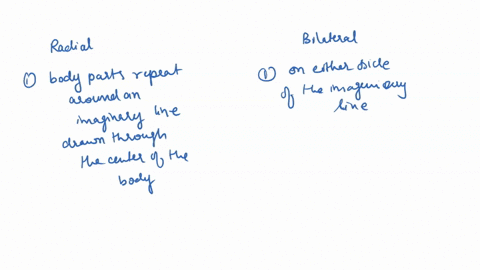 Radial
① body parts repeat
around an
imaginary line
drawn through
the center of the
body
Bilateral
① on either side
of the imaginary
line